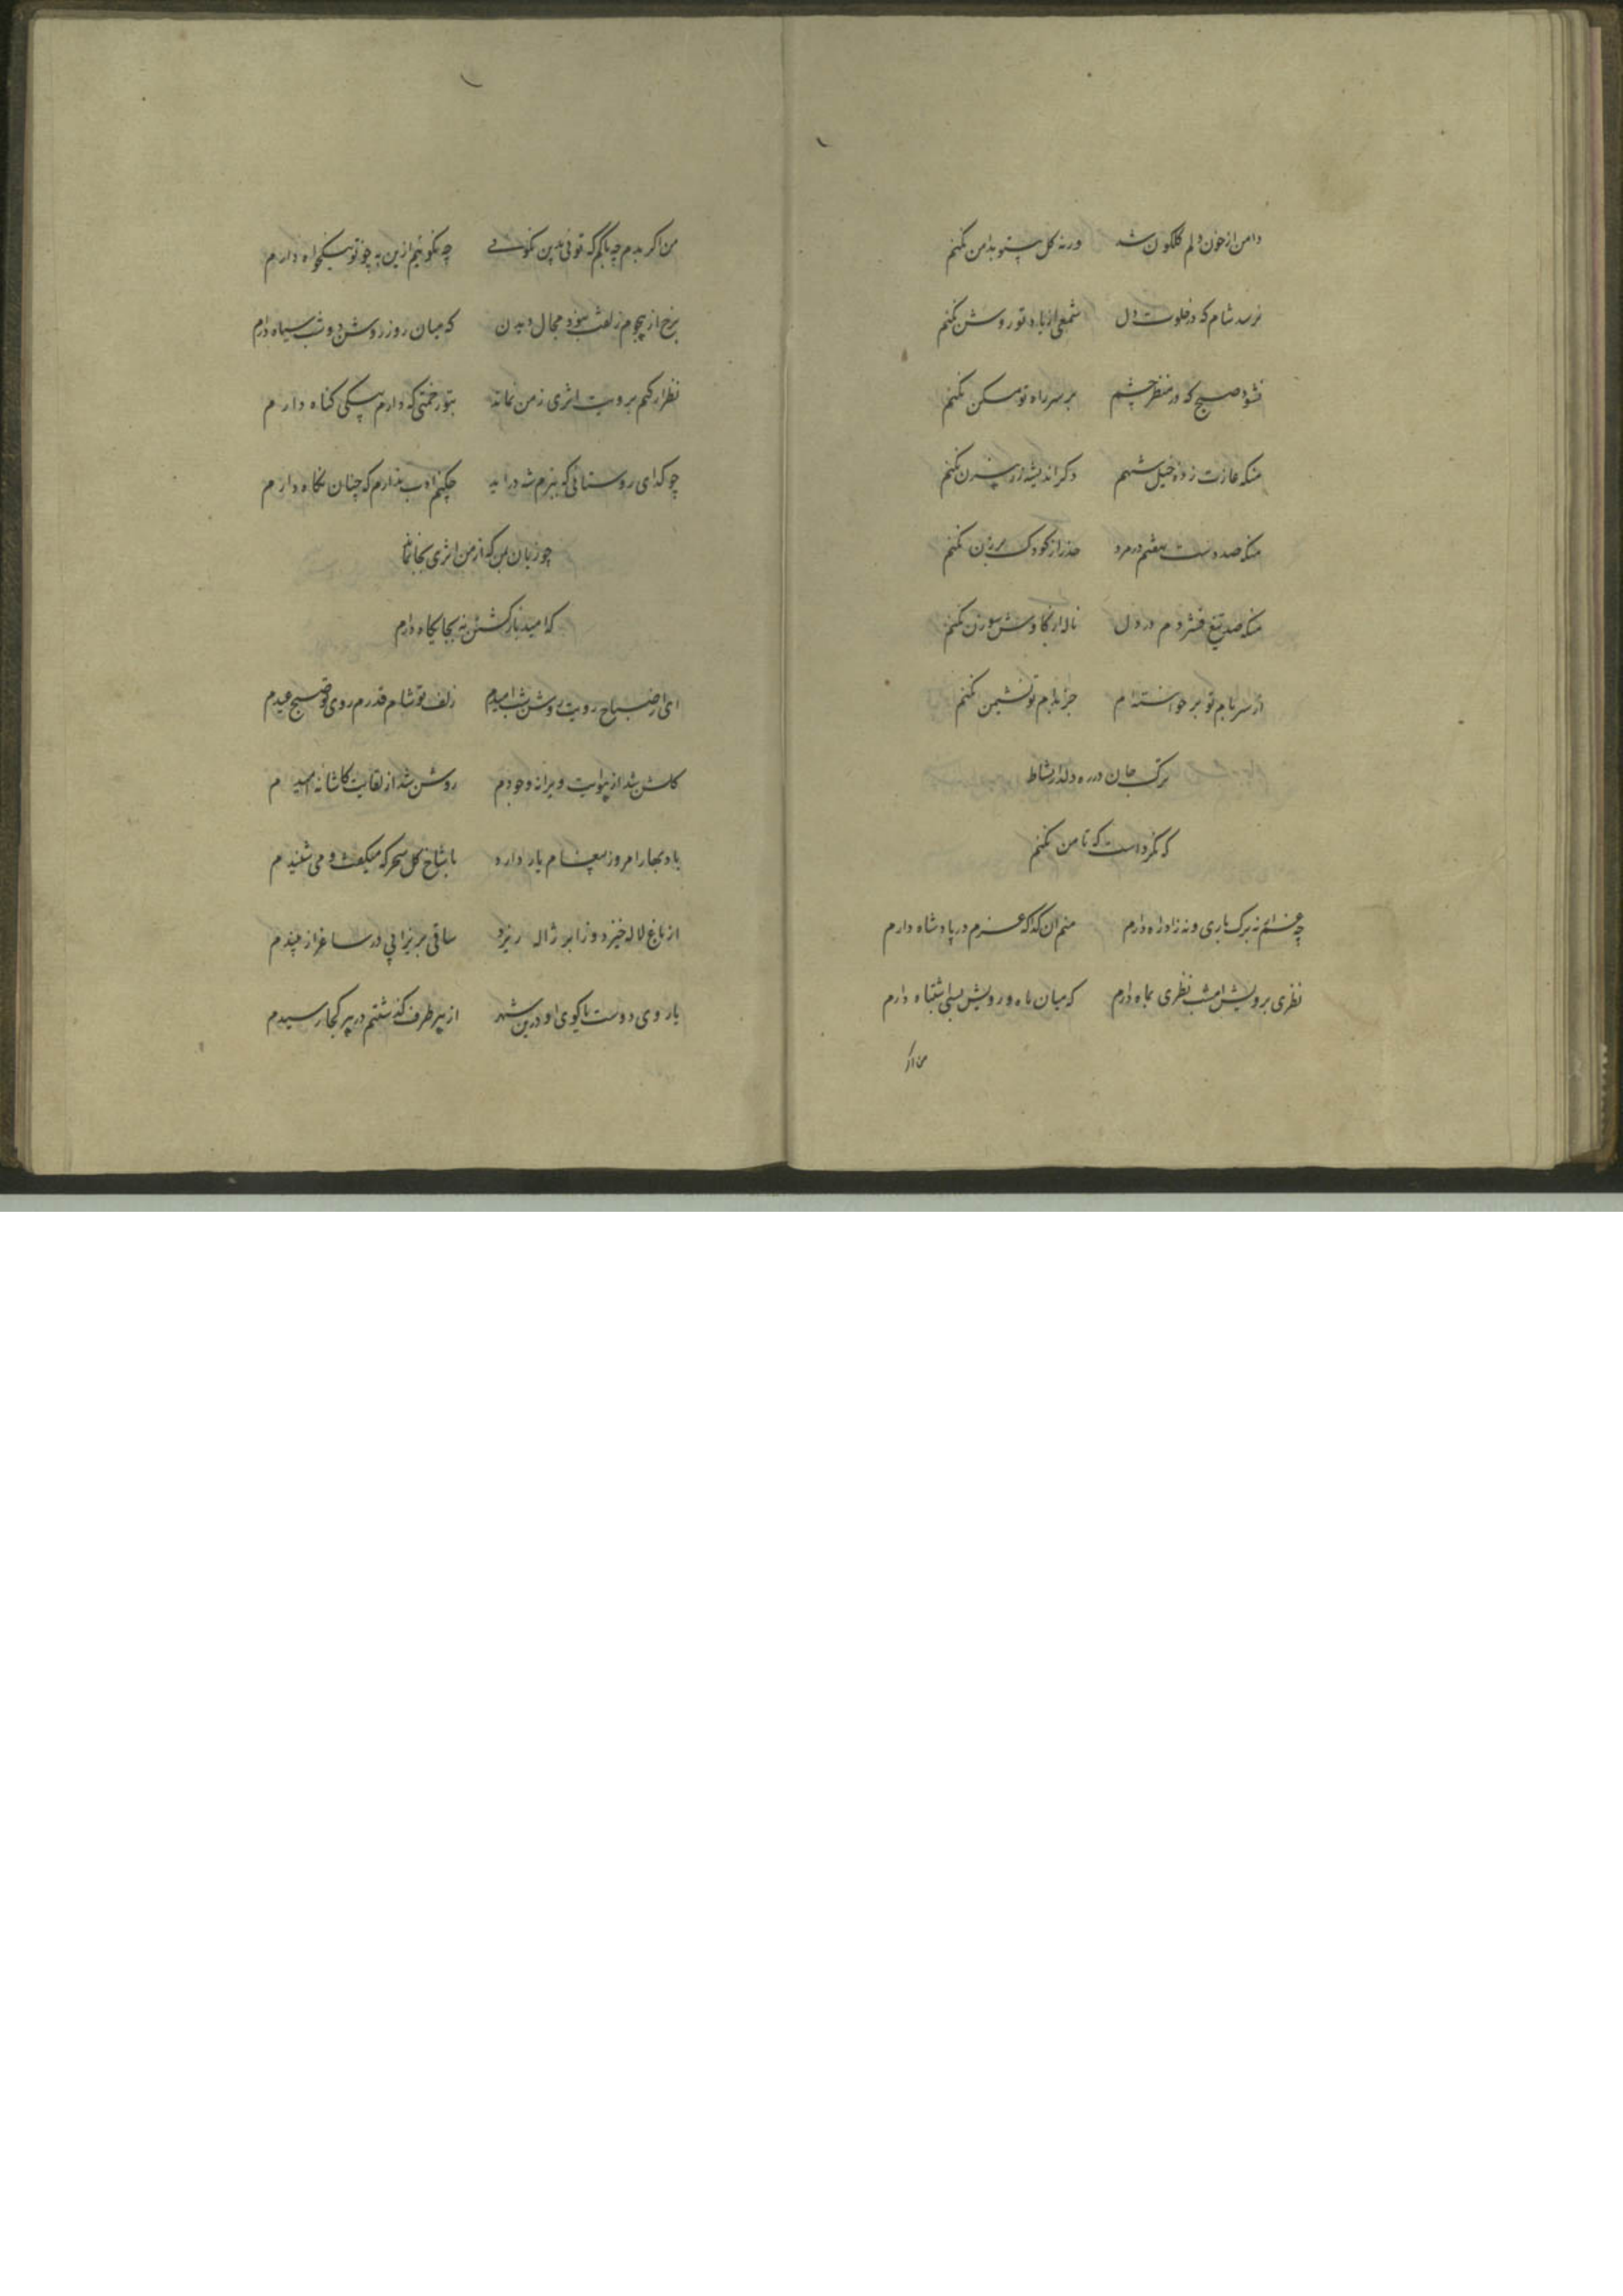 دامن از خون دلم گلگون شد ورنه گل بیتو بدامن نکنم
نرسد شام که در خلوت دل شمعی از یاد تو روشن نکنم
نشود صبح که در منظر چشم بر سر راه تو مسکن نکنم
منکه غارت زده خیل شهم دکر اندیشه ز رهزن نکنم
منکه صد دست در مرد حذر از کودک بر زن نکنم
منکه صد تیغ فشردم در دل ناله از کاوش سوزن نکنم
از سر بام تو برخواسته ام جز بدام تو نشیمن نکنم
ترک جان در ره دلدار نشاط
که نکرد است که تا من نکنم
چه غم ار نه برک باری و نه زاد راه دارم منم ان کدا که عزم در پادشاه دارم
نظری برویش امشب نظری بماه دارم که میان ماه و رویش بسی اشتباه دارم
من اکر
من اکر بدم چه باکم که توئی بدین نکوئی چه نکو تیم ازین به چو تو نیکخواه دارم
برخ از هجوم زلفت نبود مجال دیدن که میان روز روشن دو شب سیاه دارم
نظر ار کنم برویت اثری ز من نماند بتو رحمتی که دارم بیکی کناه دارم
چو کدای روستائی که ببزم شه دراید چکنم ادب ندارم که چنان نکاه دارم
چو زیان من که از من اثری بجا نماند
که امید بازکشتن نه بجایکاه دارم
ای از صباح رویت روشن شب امیدم زلف تو شام قدرم روی تو صبح عیدم
کلشن شد از هوایت ویرانه وجودم روشن شد از لقایت کاشانه امیدم
باد بهار امروز پیغام یار دارد با شاخ کل سحرکه میکفت و می شنیدم
از باغ لاله خیزد وز ابر ژاله ریزد ساقی بریز اپی در ساغر از نبیدم
یا روی دوست یا کوی او درین شهر از هر طرف کذشتم در هر کجا رسیدم